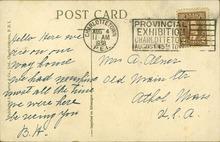 POST CARD
CHARLOTTETOWN
AUG 4
11 AM
1938
P.E.I.
PROVINCIAL
EXHIBITION
CHARLOTTETOWN
AUGUST
Here we
are on our
way home
we had
most all the time
we were here
be seeing you
B.H.
Mrs A.
Old Main St
Athol Mass
U.S.A.